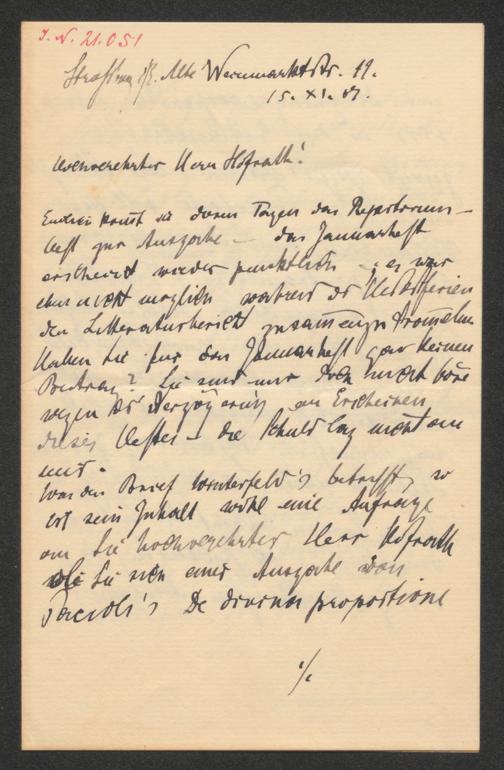 J. N. 21.051
Strassburg i/E. Alte Weinmarktstr. 19.
15. XI. 07.
Hochverehrter Herr Hofrath!
Endlich kommt in diesen Tagen das Repertorium-
heft zur Ausgabe – das Januarheft
erscheint wieder pünktlich – es war
eben nicht möglich während der Herbstferien
den Litteraturbericht zusammenzutrommeln
Haben Sie für das Januarheft gar keinen
Beitrag? Sie sind mir doch nicht böse
wegen der Verzögerung im Erscheinen
dieses Heftes – die Schuld lag nicht an
mir.
Was den Brief Winterfeld's betrifft, so
ist sein Inhalt wohl eine Anfrage
an Sie hochverehrter Herr Hofrath
wie Sie sich einer Ausgabe von
Pacioli's De divina proportione
./.